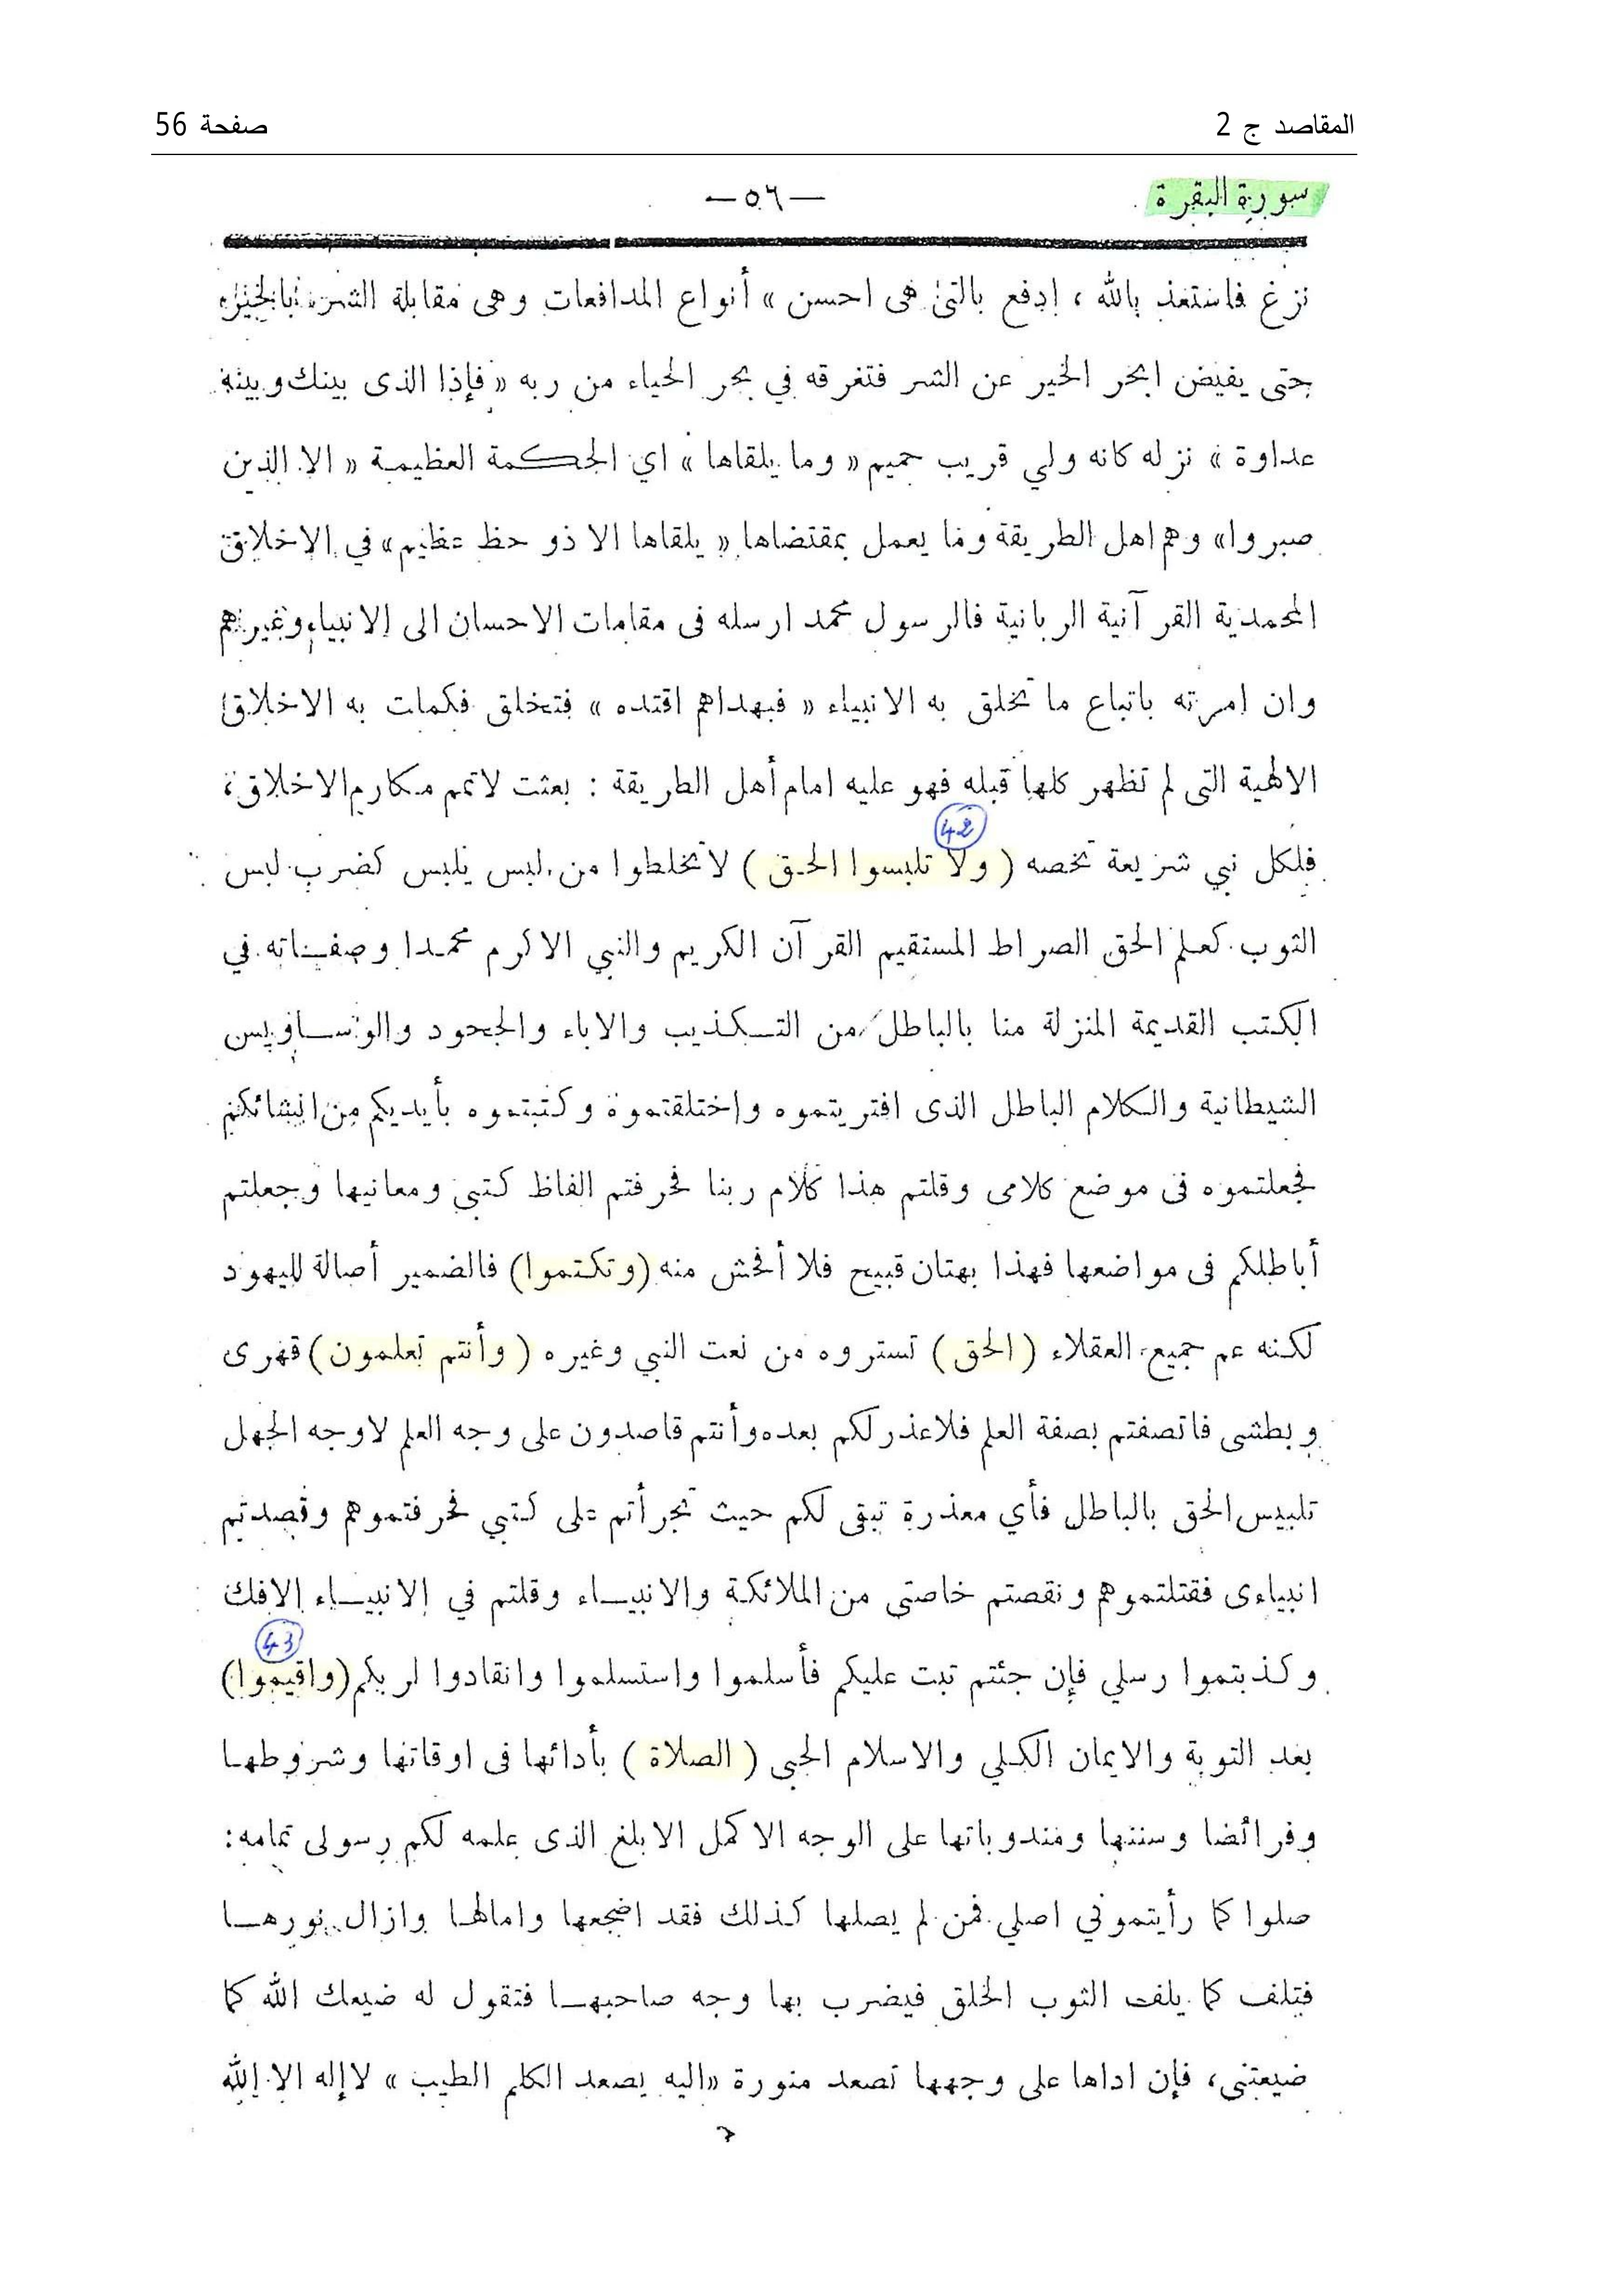 المقاصد ج 2
صفحة 56
سورة البقرة
—٥٦—
نزغ فاستعذ بالله ، ادفع بالتى هى احسن » أنواع المدافعات وهى مقابلة الشر بالخير
حتى يفيض ابحر الخير عن الشر فتغرقه في بحر الحياء من ربه « فإذا الذى بينك وبينه
عداوة » نزله كانه ولي قريب حميم « وما يلقاها » اي الحكمة العظيمة « الا الذين
صبروا» وهم اهل الطريقة وما يعمل بمقتضاها « يلقاها الا ذو حظ عظيم» في الاخلاق
المحمدية القرآنية الربانية فالرسول محمد ارسله فى مقامات الاحسان الى الانبياء وغيرهم
وان امرته باتباع ما تخلق به الانبياء « فبهداهم اقتده » فتخلق فكملت به الاخلاق
الالهية التى لم تظهر كلها قبله فهو عليه امام أهل الطريقة : بعثت لاتمم مكارم الاخلاق،
42
فلكل نبي شريعة تخصه ( ولا تلبسوا الحق ) لا تخلطوا من لبس يلبس كضرب لبس
الثوب كعلم الحق الصراط المستقيم القرآن الكريم والنبي الاكرم محمدا وصفاته في
الكتب القديمة المنزلة منا بالباطل من التكذيب والاباء والجحود والوساويس
الشيطانية والكلام الباطل الذى افتريتموه واختلقتموه وكتبتموه بأيديكم من انشائكم
فجعلتموه فى موضع كلامى وقلتم هذا كلام ربنا فحرفتم الفاظ كتبي ومعانيها وجعلتم
أباطلكم فى مواضعها فهذا بهتان قبيح فلا أفحش منه (وتكتموا) فالضمير أصالة لليهود
لكنه عم جميع العقلاء ( الحق ) تستروه من نعت النبي وغيره ( وأنتم تعلمون ) قهرى
وبطشى فاتصفتم بصفة العلم فلا عذر لكم بعده وأنتم قاصدون على وجه العلم لا وجه الجهل
تلبيس الحق بالباطل فأي معذرة تبقى لكم حيث تجرأتم على كتبي فحرفتموهم وقصدتم
انبياءى فقتلتموهم ونقصتم خاصتى من الملائكة والانبياء وقلتم في الانبياء الافك
43
وكذبتموا رسلي فإن جئتم تبت عليكم فأسلموا واستسلموا وانقادوا لربكم (واقيموا)
بعد التوبة والايمان الكلي والاسلام الحبى ( الصلاة ) بأدائها فى اوقاتها وشروطها
وفرائضا وسننها ومندوباتها على الوجه الاكمل الابلغ الذى علمه لكم رسولى تمامه:
صلوا كما رأيتموني اصلي فمن لم يصلها كذلك فقد اضجعها وامالها وازال نورها
فتلف كما يلفت الثوب الخلق فيضرب بها وجه صاحبها فتقول له ضيعك الله كما
ضيعتنى، فإن اداها على وجهها تصعد منورة «اليه يصعد الكلم الطيب » لا إله الا الله